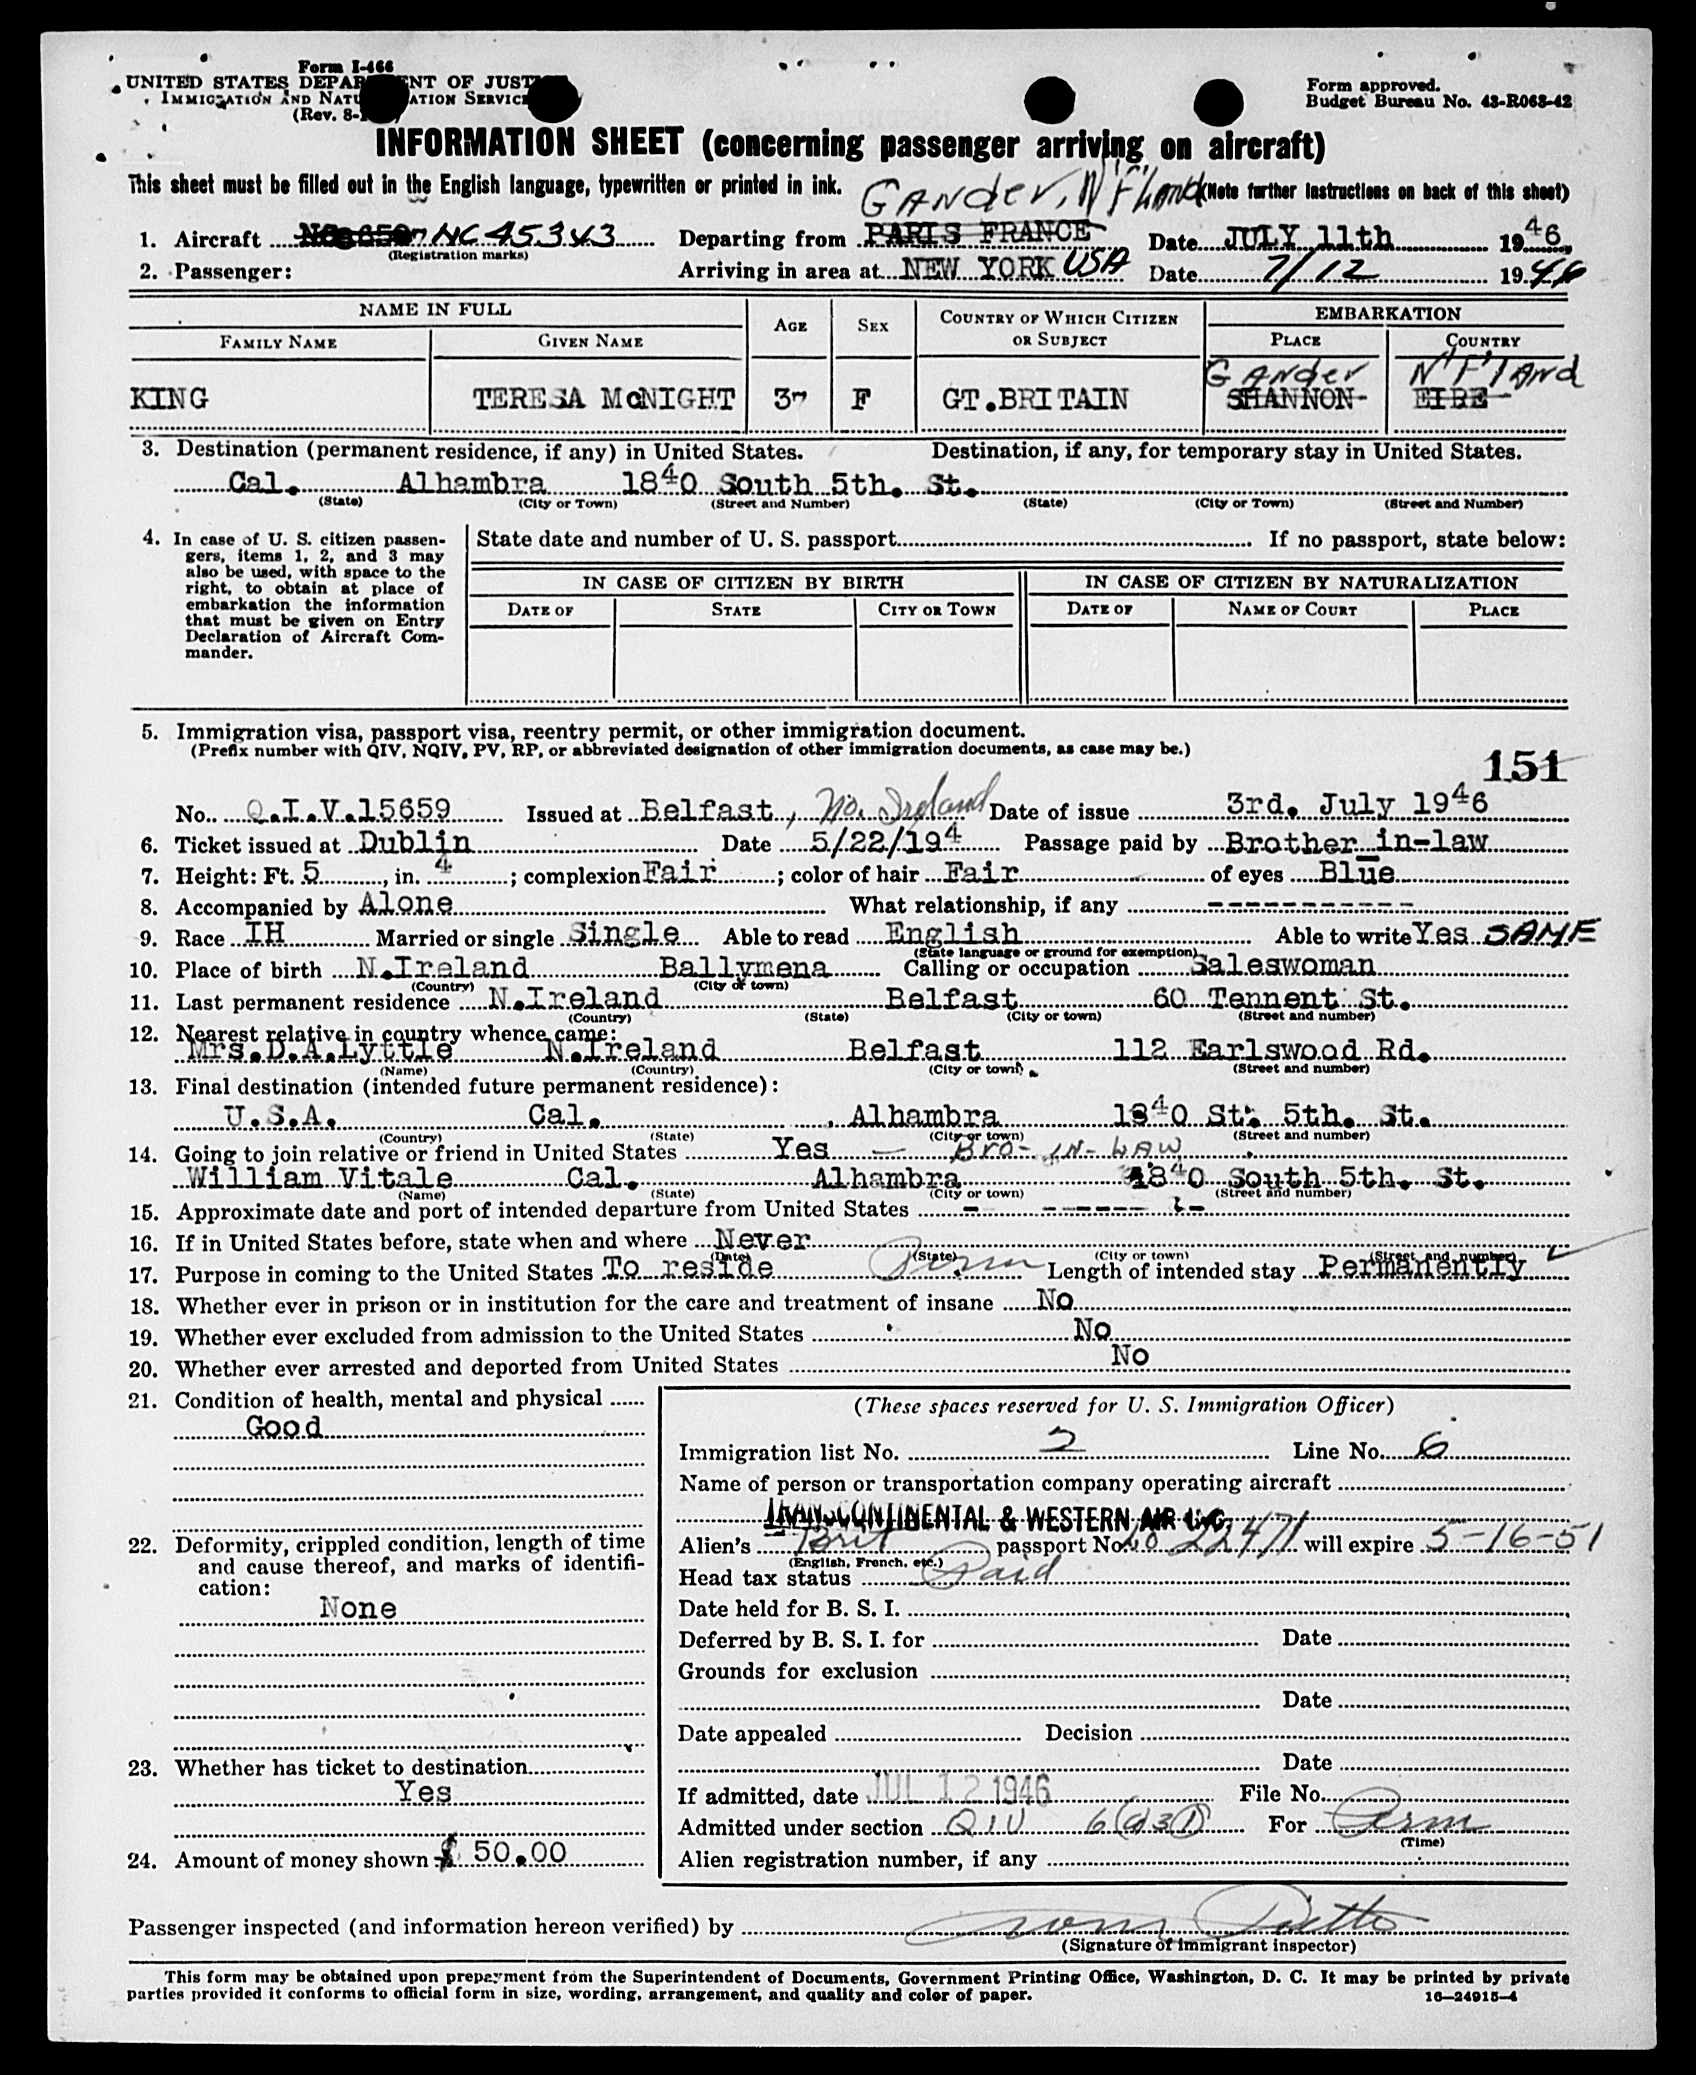 Form I-466
UNITED STATES DEPARTMENT OF JUSTICE
IMMIGRATION AND NATURALIZATION SERVICE
(Rev. 8-
Form approved.
Budget Bureau No. 43-R063-42
INFORMATION SHEET (concerning passenger arriving on aircraft)
This sheet must be filled out in the English language, typewritten or printed in ink. (Note further instructions on back of this sheet)
Gander, N'F'land
1. Aircraft NC 45343 Departing from PARIS FRANCE Date JULY 11th 1946
(Registration marks)
2. Passenger: Arriving in area at NEW YORK USA Date 7/12 1946
NAME IN FULL AGE SEX COUNTRY OF WHICH CITIZEN OR SUBJECT EMBARKATION
FAMILY NAME GIVEN NAME PLACE COUNTRY
Gander N'F'land
KING TERESA McNIGHT 37 F GT.BRITAIN SHANNON EIRE
3. Destination (permanent residence, if any) in United States. Destination, if any, for temporary stay in United States.
Cal. Alhambra 1840 South 5th. St.
(State) (City or Town) (Street and Number) (State) (City or Town) (Street and Number)
4. In case of U. S. citizen passen-
gers, items 1, 2, and 3 may
also be used, with space to the
right, to obtain at place of
embarkation the information
that must be given on Entry
Declaration of Aircraft Com-
mander.
State date and number of U. S. passport If no passport, state below:
IN CASE OF CITIZEN BY BIRTH IN CASE OF CITIZEN BY NATURALIZATION
DATE OF STATE CITY OR TOWN DATE OF NAME OF COURT PLACE
5. Immigration visa, passport visa, reentry permit, or other immigration document.
(Prefix number with QIV, NQIV, PV, RP, or abbreviated designation of other immigration documents, as case may be.)
151
No. Q.I.V.15659 Issued at Belfast, No. Ireland Date of issue 3rd. July 1946
6. Ticket issued at Dublin Date 5/22/194 Passage paid by Brother in-law
7. Height: Ft. 5, in. 4; complexion Fair; color of hair Fair of eyes Blue
8. Accompanied by Alone What relationship, if any ------------
9. Race IH Married or single Single Able to read English Able to write Yes SAME
(State language or ground for exemption)
10. Place of birth N.Ireland Ballymena Calling or occupation Saleswoman
(Country) (City or town)
11. Last permanent residence N.Ireland Belfast 60 Tennent St.
(Country) (State) (City or town) (Street and number)
12. Nearest relative in country whence came:
Mrs.D.A.Lyttle N.Ireland Belfast 112 Earlswood Rd.
(Name) (Country) (City or town) (Street and number)
13. Final destination (intended future permanent residence):
U.S.A. Cal. Alhambra 1840 St. 5th. St.
(Country) (State) (City or town) (Street and number)
14. Going to join relative or friend in United States Yes — Bro-IN-LAW
William Vitale Cal. Alhambra 1840 South 5th. St.
(Name) (State) (City or town) (Street and number)
15. Approximate date and port of intended departure from United States - ------ -
16. If in United States before, state when and where Never
(Date) (State) (City or town) (Street and number)
17. Purpose in coming to the United States To reside Perm Length of intended stay Permanently
18. Whether ever in prison or in institution for the care and treatment of insane No
19. Whether ever excluded from admission to the United States No
20. Whether ever arrested and deported from United States No
21. Condition of health, mental and physical
Good
22. Deformity, crippled condition, length of time
and cause thereof, and marks of identifi-
cation:
None
23. Whether has ticket to destination
Yes
24. Amount of money shown $ 50.00
(These spaces reserved for U. S. Immigration Officer)
Immigration list No. 2 Line No. 6
Name of person or transportation company operating aircraft
TRANSCONTINENTAL & WESTERN AIR INC.
Alien's Brit passport No. 22471 will expire 5-16-51
(English, French, etc.)
Head tax status Paid
Date held for B. S. I.
Deferred by B. S. I. for Date
Grounds for exclusion
Date
Date appealed Decision
Date
If admitted, date JUL 12 1946 File No.
Admitted under section QIV 6(a31) For Perm
(Time)
Alien registration number, if any
Passenger inspected (and information hereon verified) by
(Signature of immigrant inspector)
This form may be obtained upon prepayment from the Superintendent of Documents, Government Printing Office, Washington, D. C. It may be printed by private
parties provided it conforms to official form in size, wording, arrangement, and quality and color of paper.
16—24915-4